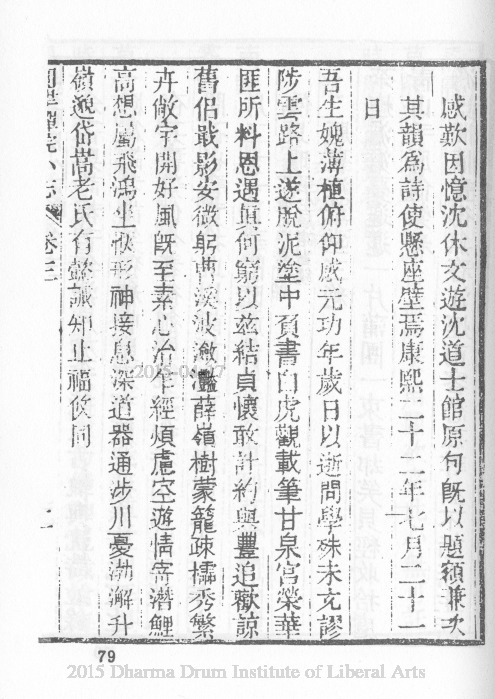 感歎因憶沈休文遊沈道士館原句旣以題額兼次
其韻為詩使懸座壁焉康熙二十二年七月二十一
日
吾生媿薄植俯仰感元功年歲日以逝問學殊未充謬
陟雲路上遂脫泥塗中負書白虎觀載筆甘泉宮榮華
匪所料恩遇真何窮以茲結貞懷敢計約與豐追歡諒
舊侶戢影安微躬曹溪波瀲灩薛嶺樹蒙籠疎櫺秀繁
卉敞宇開好風旣至素心洽 經煩慮空遊情寄潛鯉
高想屬飛鴻坐 形神接息深道器通涉川憂渤澥升
嶺邈岱嵩老氏有懿誡知止福攸同
禪院小志 卷三 二
79
2015 Dharma Drum Institute of Liberal Arts